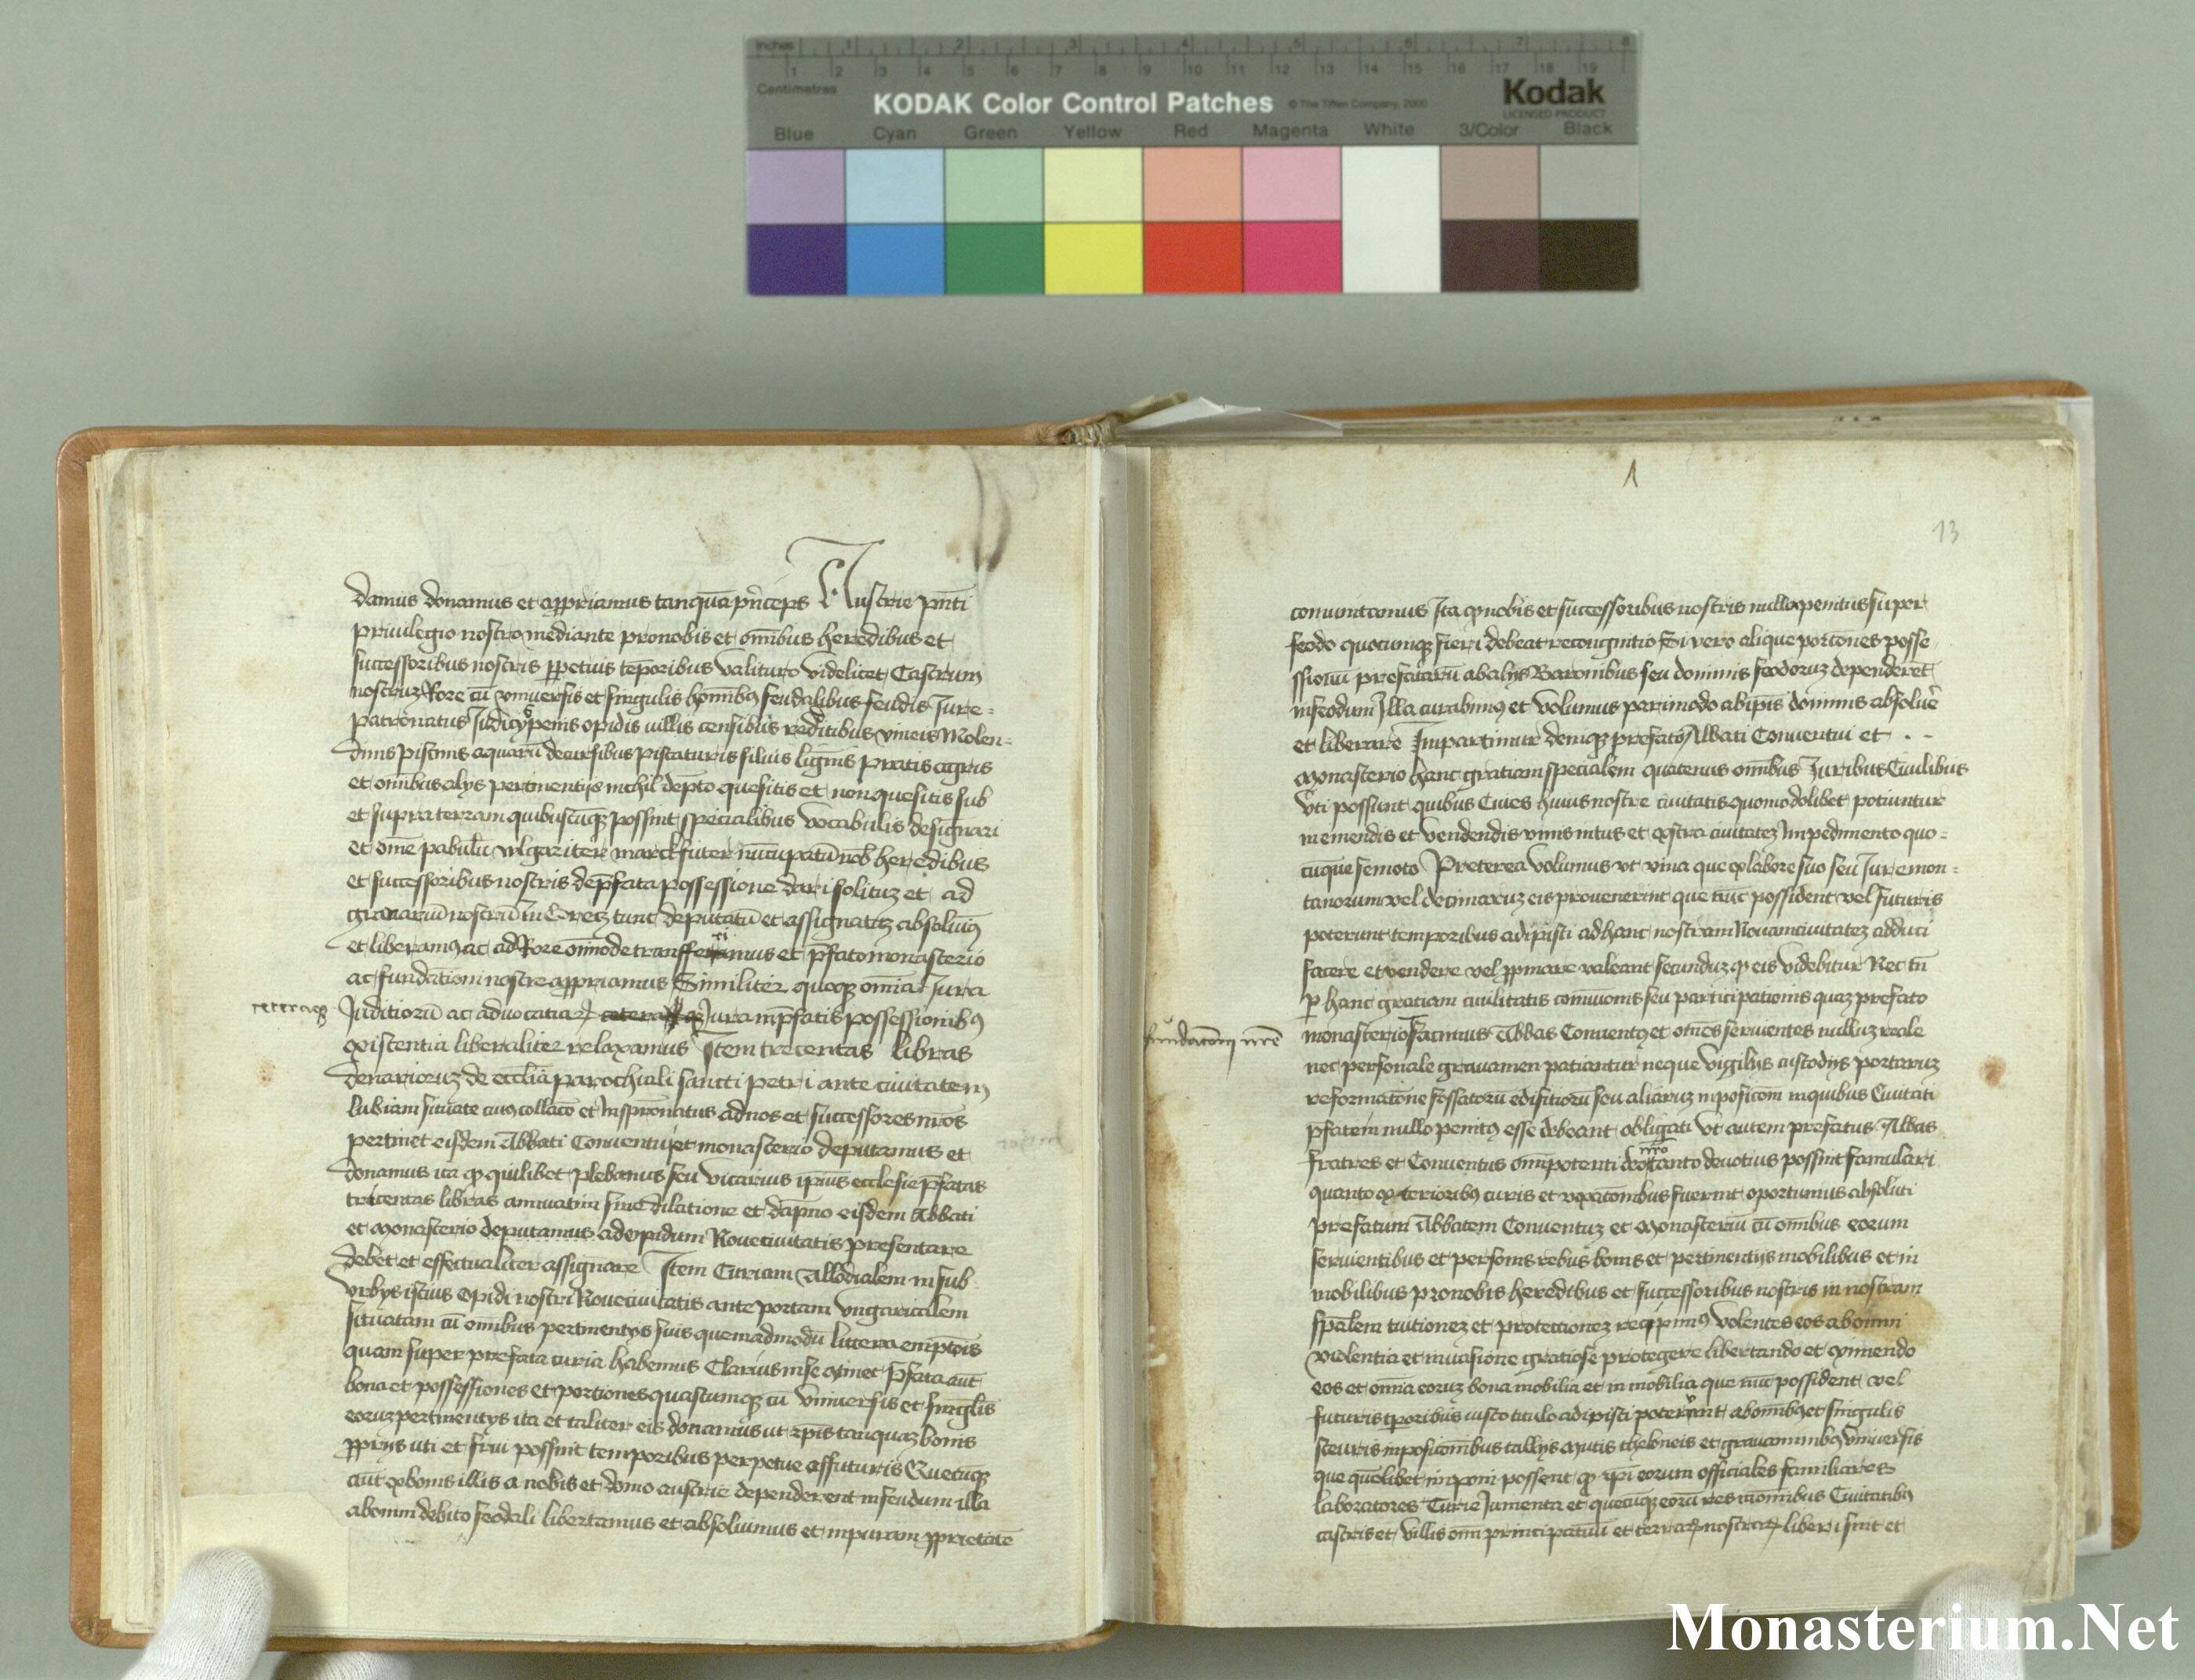 Inches 1 2 3 4 5 6 7 8
1 2 3 4 5 6 7 8 9 10 11 12 13 14 15 16 17 18 19
Centimetres
KODAK Color Control Patches © The Tiffen Company, 2000 Kodak
LICENSED PRODUCT
Blue Cyan Green Yellow Red Magenta White 3/Color Black
damus donamus et appriamus tanquā pn̄ceps Austrie pn̄ti
priuilegio nostro mediante pro nobis et om̄ibus heredibus et
successoribus nostris ꝑpetuis tēporibus valituro videlicet Castrum
nostruz Rore cū vniuersis et singulis ho͞mibꝯ feudalibus feudis Jure
patronatus Judicijs penis opidis villis censibus redditibus vineis Molen-
dinis piscinis aquarū decursibus piscaturis siluis lignis pratis agris
et om̄ibus alys pertinentijs nichil dēpto quesitis et non quesitis sub
et supra terram quibuscūqꝫ possint specialibus vocabulis designari
et om̄e pabulū vlgariter marckfuter nūcupatū nob heredibus
et successoribus nostris de p̄fata possessione dari solituz et ad
granariū nostrū in tunc deputatū et assignatuz absoluimꝯ
et liberamꝯ ac ad Rore om̄imode transferimus et p̄fato monasterio
ac fundationi nostre appriamus Similiter quoqꝫ om̄ia Jura
Juditiorū ac aduocatiaꝝ Jura in p̄fatis possessionibꝯ
existentia liberaliter relaxamus Item trecentas libras
denarioruz de ecclīa parochiali sancti petri ante ciuitatem
lubiam situate cuiꝯ collaco͞ et Juspr̄onatus ad nos et successores nr̄os
pertinet eisdem Abbati Conuentui et monasterio deputamus et
donamus ita ꝙ quilibet plebanus seu vicarius ip̄ius ecclesie p̄fatas
trecentas libras annuatim sine dilatione et dāpno eisdem Abbati
et Monasterio deputamus ad opidum Noueciuitatis presentare
debet et effectualiter assignare Item Curiam Allodialem in sub
vrbys istius opidi nostri Noueciuitatis ante portam vngaricalem
situatam cū om̄ibus pertinentys suis quemadmodū littera emptois
quam super prefata curia habemus Clarius in se 9tinet p̄fata aut
bona et possessiones et portiones quascumqꝫ cū vniuersis et singulis
eoruz pertinentys ita et taliter eis donamus ut ip̄is tanquaz bonis
ꝓprijs uti et frui possint temporibus perpetue affuturis Quecūqꝫ
aūt ex bonis illis a nobis et domo austrie dependerent in feudum illa
ab omni debito feodali libertamus et absoluimus et in puram ꝓprietatē
1
13
comutamus Ita ꝙ nobis et successoribus nostris nulla penitus super
feodo quocumqꝫ fieri debeat recognitio Si vero alique portones posse
ssionū prefatarū ab alijs Baronibus seu dominis feodoruz dependerēt
in feodum Illa curabimꝯ et volumus pari modo ab ip̄is dominis absoluē
et liberare Impartimur deniqꝫ prefato Abbati Conuentui et
Monasterio hanc gratiam specialem quatenus om̄ibus Juribus Ciuilibus
vti possint quibus Ciues huius nostre ciuitatis quomodolibet potiuntur
in emendis et vendendis vinis intus et extra ciuitatez Impedimento quo-
cūque semoto Preterea volumus vt vina que ex labore suo seu Jure mon-
tanorum vel decimaruz eis prouenerint que nūc possident vel futuris
poterunt temporibus adipisti ad hanc nostram Nouam ciuitatez adduci
facere et vendere vel ꝓpinare valeant secunduz ꝙ eis videbitur Nec tn̄
ꝑ hanc gratiam ciuilitatis comunionis seu participationis quaz prefato
fundatōni nr̄e
monasterio facimus Abbas Conuentꝯ et om̄es seruientes nulluz reale
nec personale grauamen patiantur neque vigilys custodijs portaruz
reformatōne fossatoru edifitiorū seu aliaruz inpositom̄ in quibus Ciuitati
p̄fate in nullo penitꝯ esse debeant obligati Vt autem prefatus Abbas
fratres et Conuentus om̄ipotenti deo tanto deuotius possint famulari
quanto exterioribꝯ curis et vexatōnibus fuerint oportunius absoluti
prefatum Abbatem Conuentuz et Monasteriū cū om̄ibus eorum
seruientibus et personis rebus bonis et pertinentijs mobilibus et in
mobilibus pro nobis heredibus et successoribus nostris in nostram
spālem tuitionez et protectionez recipimꝯ volentes eos ab omni
violentia et inuasione gratiose protegere libertando et eximendo
eos et om̄ia eoruz bona mobilia et in mobilia que nūc possident vel
futuris tꝑoribus iusto titulo adipisti poterint ab om̄ibꝯ et singulis
steuris inpositionibus tallijs Mutis theloneis et grauaminibꝯ vniuersis
que quōlibet inponi possent ꝙ ip̄i eorum officiales familiares
laboratores Curie Jumenta et quecūqꝫ eorū res in om̄ibus Ciuitatibꝯ
castris et villis om̄i principatuū et terraꝝ nostraꝝ liberi sint et
Monasterium.Net